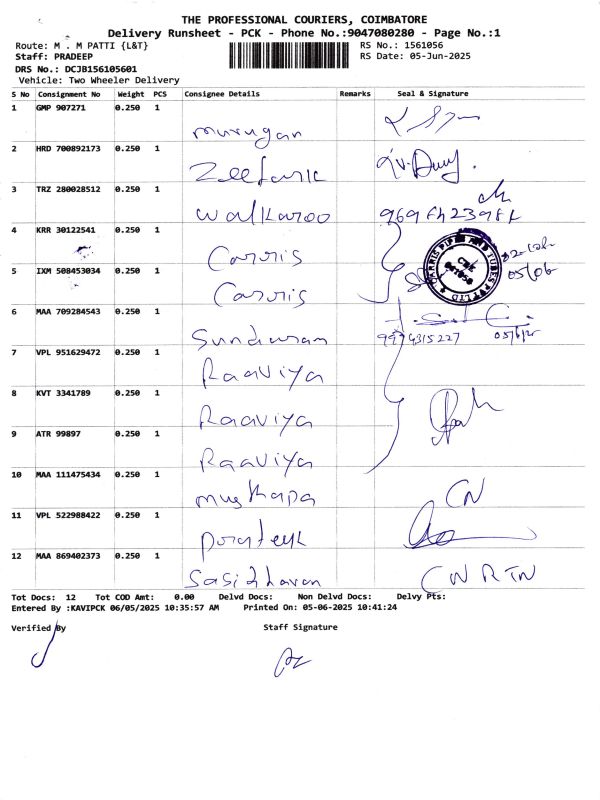 THE PROFESSIONAL COURIERS, COIMBATORE
Delivery Runsheet - PCK - Phone No.:9047080280 - Page No.:1
Route: M . M PATTI {L&T} RS No.: 1561056
Staff: PRADEEP RS Date: 05-Jun-2025
DRS No.: DCJB156105601
Vehicle: Two Wheeler Delivery
S No Consignment No Weight PCS Consignee Details Remarks Seal & Signature
1 GMP 907271 0.250 1 murugan
2 HRD 700892173 0.250 1 Zeefark
3 TRZ 280028512 0.250 1 walkaroo
4 KRR 30122541 0.250 1 Carris
5 IXM 508453034 0.250 1 Carris
CARRIS PIPES AND TUBES PVT LTD
6 MAA 709284543 0.250 1 Sundaram
7 VPL 951629472 0.250 1 Raaviya
8 KVT 3341789 0.250 1 Raaviya
9 ATR 99897 0.250 1 Raaviya
10 MAA 111475434 0.250 1 mustkapa CN
11 VPL 522988422 0.250 1
12 MAA 869402373 0.250 1 Sasidharan CN RTN
Tot Docs: 12 Tot COD Amt: 0.00 Delvd Docs: Non Delvd Docs: Delvy Pts:
Entered By :KAVIPCK 06/05/2025 10:35:57 AM Printed On: 05-06-2025 10:41:24
Verified By Staff Signature